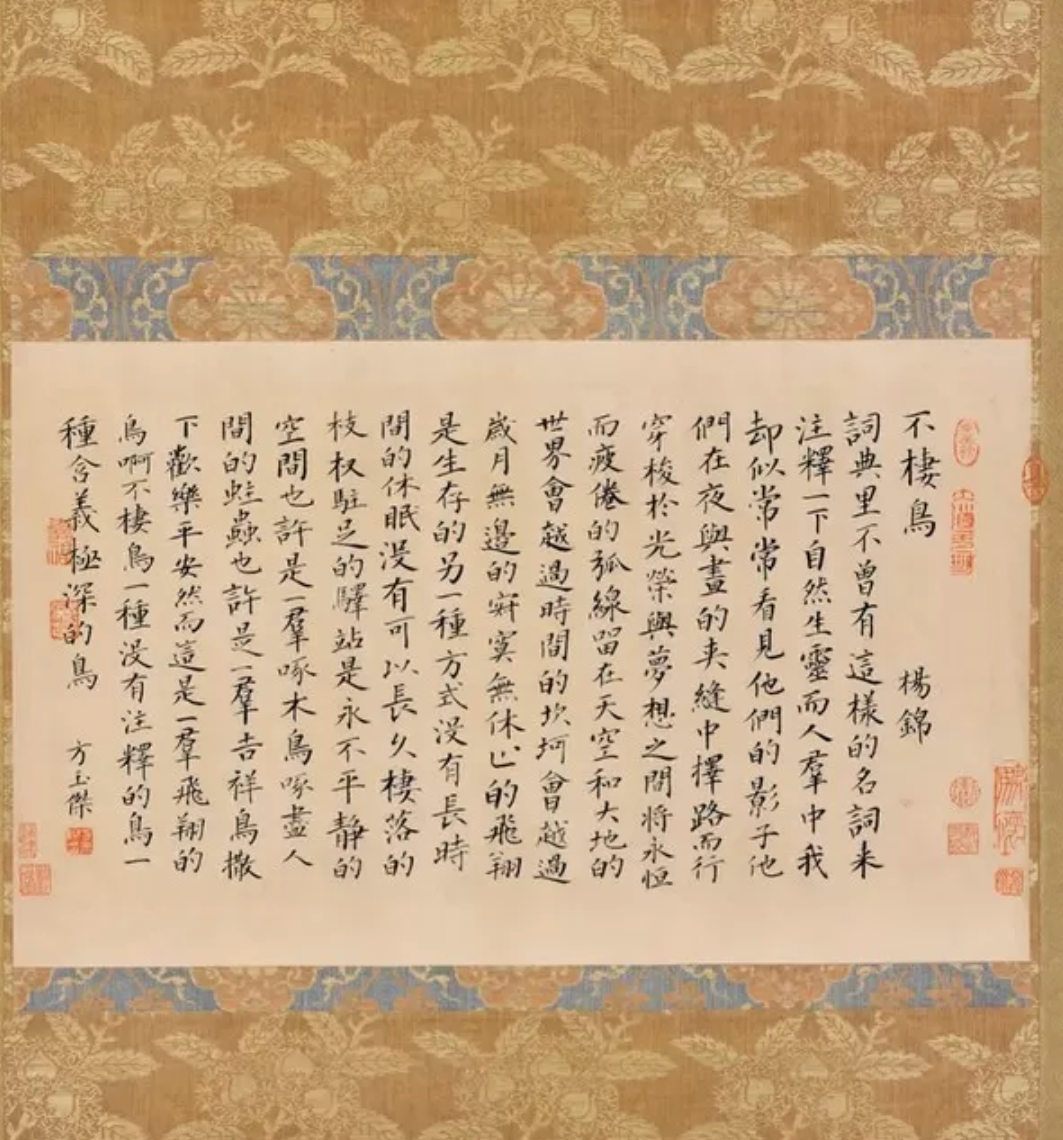 不棲鳥 楊錦
詞典里不曾有這樣的名詞來
注釋一下自然生靈而人羣中我
却似常常看見他們的影子他
們在夜與晝的夹縫中擇路而行
穿梭於光榮與夢想之間將永恒
而疲倦的弧線留在天空和大地的
世界會越過時間的坎坷會越過
歲月無邊的寂寞無休止的飛翔
是生存的另一種方式没有長時
間的休眠没有可以長久棲落的
枝杈駐足的驛站是永不平静的
空間也許是一羣啄木鳥啄盡人
間的蛀蟲也許是一羣吉祥鳥撒
下歡樂平安然而這是一羣飛翔的
鳥啊不棲鳥一種没有注釋的鳥一
種含義極深的鳥 方玉傑